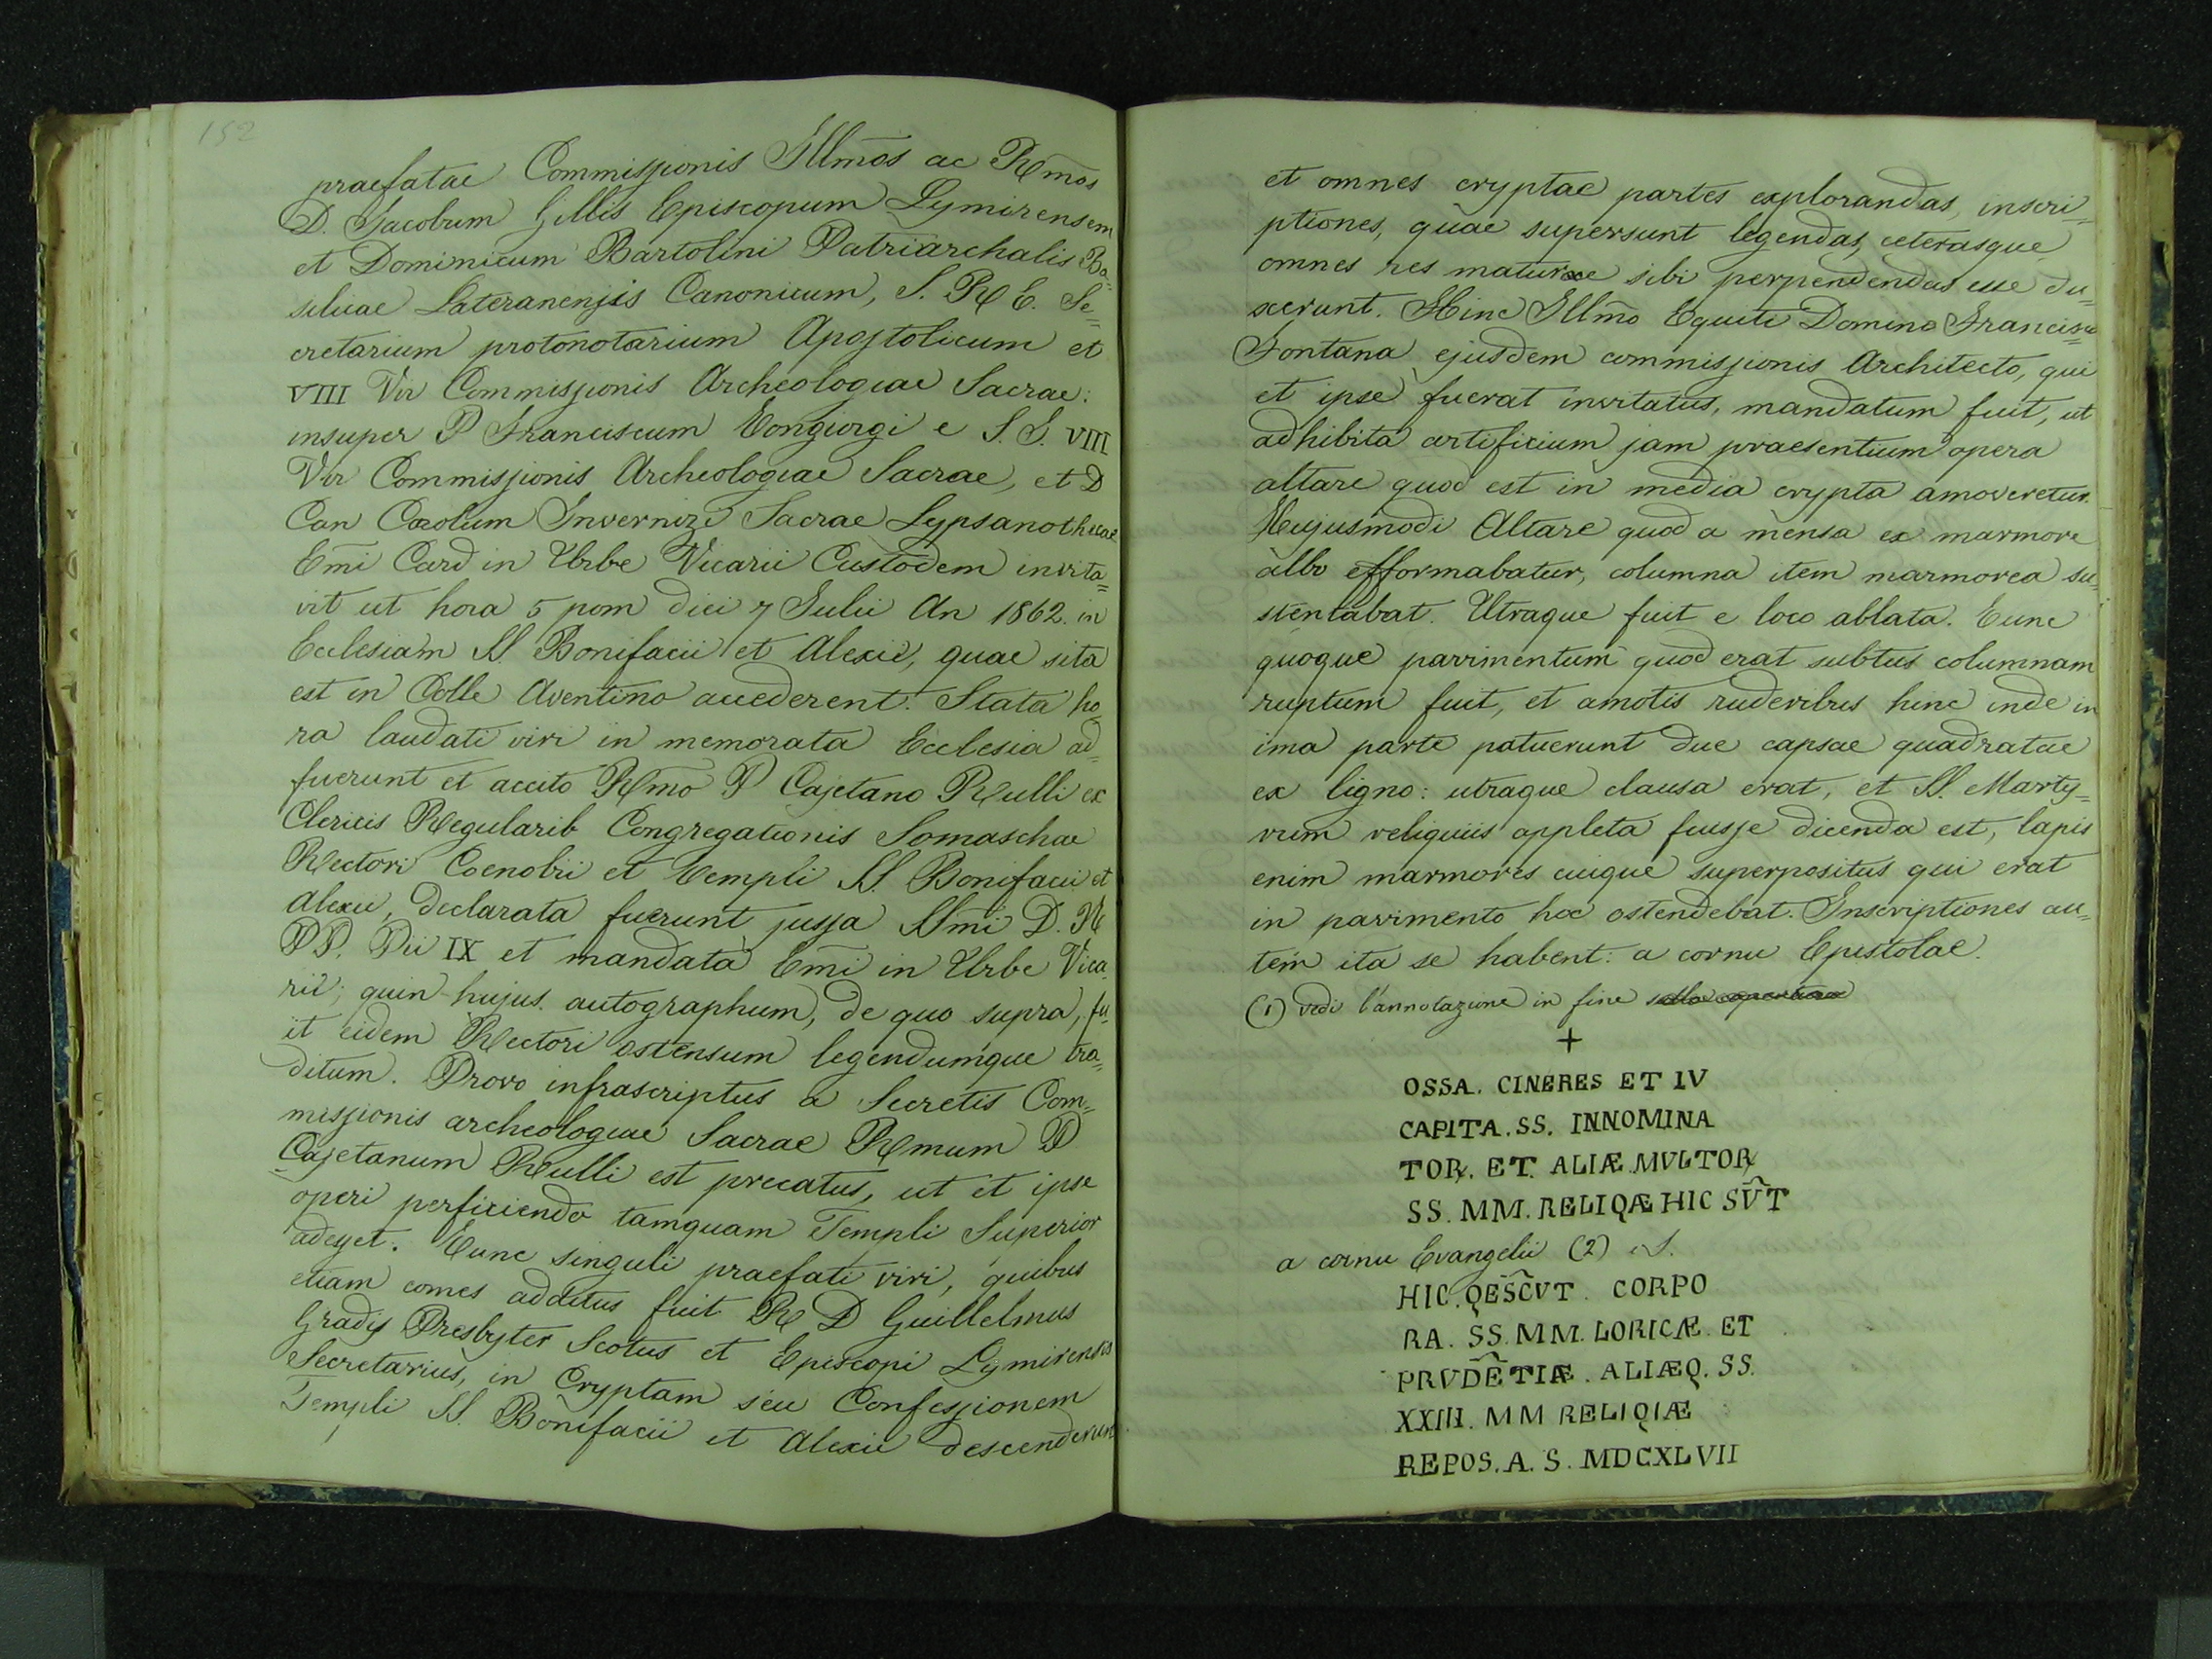 152
praefatae Commissionis Illm̃os ac Rm̃os
D. Jacobum Gillis Episcopum Lymirensem
et Dominicum Bartolini Patriarchalis Ba=
silicae Lateranensis Canonicum, S. R E. Se=
cretarium protonotarium Apostolicum et
VIII Vir Commissionis Archeologiae Sacrae:
insuper P Franciscum Tongiorgi e S. J. VIII
Vir Commissionis Archeologiae Sacrae, et D
Can Carolum Invernizi Sacrae Lypsanothecae
Em̃i Card in Urbe Vicarii Custodem invita=
vit ut hora 5 pom diei 7 Julii An 1862. in
Ecclesiam SS. Bonifacii et Alexii, quae sita
est in Colle Aventino accederent. Stata ho
ra laudati viri in memorata Ecclesia ad=
fuerunt et accito Rm̃o P Cajetano Rulli ex
Clericis Regularib Congregationis Somaschae
Rectori Coenobii et Templi SS. Bonifacii et
Alexii, declarata fuerunt jussa SSm̃i D. N
PP. Pii IX et mandata Em̃i in Urbe Vica
rii; quin hujus autographum, de quo supra, fu=
it eidem Rectori ostensum legendumque tra=
ditum. Provo infrascriptus a Secretis Com=
missionis archeologiae Sacrae Rmum P
Cajetanum Rulli est precatus, ut et ipse
operi perficiendo tamquam Templi Superior
adesset. Tunc singuli praefati viri, quibus
etiam comes additus fuit R D Guillelmus
Gradys Presbyter Scotus et Episcopi Lymirensis
Secretarius, in Cryptam seu Confessionem
Templi SS. Bonifacii et Alexii descenderunt
et omnes cryptae partes explorandas, inscri=
ptiones, quae supersunt legendas, ceterasque
omnes res mature sibi perpendendas esse du=
xerunt. Hinc Illm̃o Equiti Domino Francisco
Fontana ejusdem commissionis Architecto, qui
et ipse fuerat invitatus, mandatum fuit, ut
adhibita artificium jam praesentium opera
altare quod est in media crypta amoveretur.
Hujusmodi Altare quod a mensa ex marmore
albo efformabatur, columna item marmorea su=
stentabat. Utraque fuit e loco ablata. Tunc
quoque pavimentum quod erat subtus columnam
ruptum fuit, et amotis ruderibus hinc inde in
ima parte patuerunt due capsae quadratae
ex ligno: utraque clausa erat, et SS. Marty=
rum reliquiis appleta fuisse dicenda est, lapis
enim marmoris cuique superpositus qui erat
in pavimento hoc ostendebat. Inscriptiones au=
tem ita se habent: a cornu Epistolae.
(1) vedi l'annotazione in fine
+
OSSA. CINERES ET IV
CAPITA. SS. INNOMINA
TOR̷. ET. ALIÆ. MVLTOR̷
SS. MM. RELIQÆ HIC SṼT
a cornu Evangelii (2)
HIC. QES̃CVT. CORPO
RA. SS. MM. LORICÆ. ET
PRVDẼTIÆ. ALIÆQ. SS.
XXIII. MM RELIQIÆ
REPOS. A. S. MDCXLVII